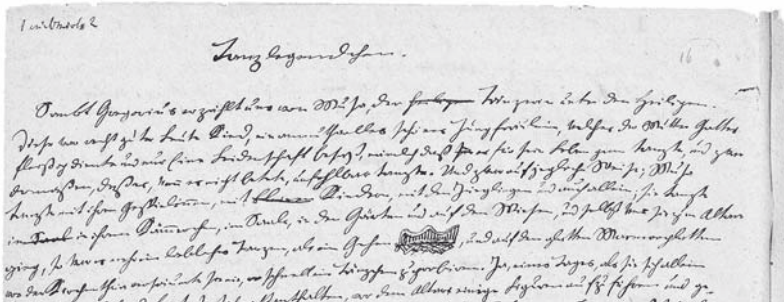 Tanzlegendchen.
16
Sankt Gregorius erzählt uns von Musa, der Tänzerin unter den Heiligen.
Diese war recht guter Leute Kind, ein anmuthvolles schönes Jungfräulein, welches der Mutter Gottes
fleißig diente und nur Eine Leidenschaft besaß, nämlich daß für sein Leben gern tanzte, und zwar
dermaßen, daß es, wenn es nicht betete, unfehlbar tanzte. Und zwar auf jegliche Weise; Musa
tanzte mit ihren Gespielinnen, mit Kindern, mit den Jünglingen und auch allein; sie tanzte
in ihrem Kämmerchen, im Saale, in den Gärten und auf den Wiesen, und selbst wenn sie zum Altar
ging, so war es mehr ein liebliches Tanzen, als ein Gehen, und auf den glatten Marmorplatten
vor der Kirchenthür versäumte sie nie, schnell ein Tänzchen zu probieren. Ja, eines Tages, als sie sich allein
enthalten, vor dem Altare einige Figuren aufzuführen und ge-